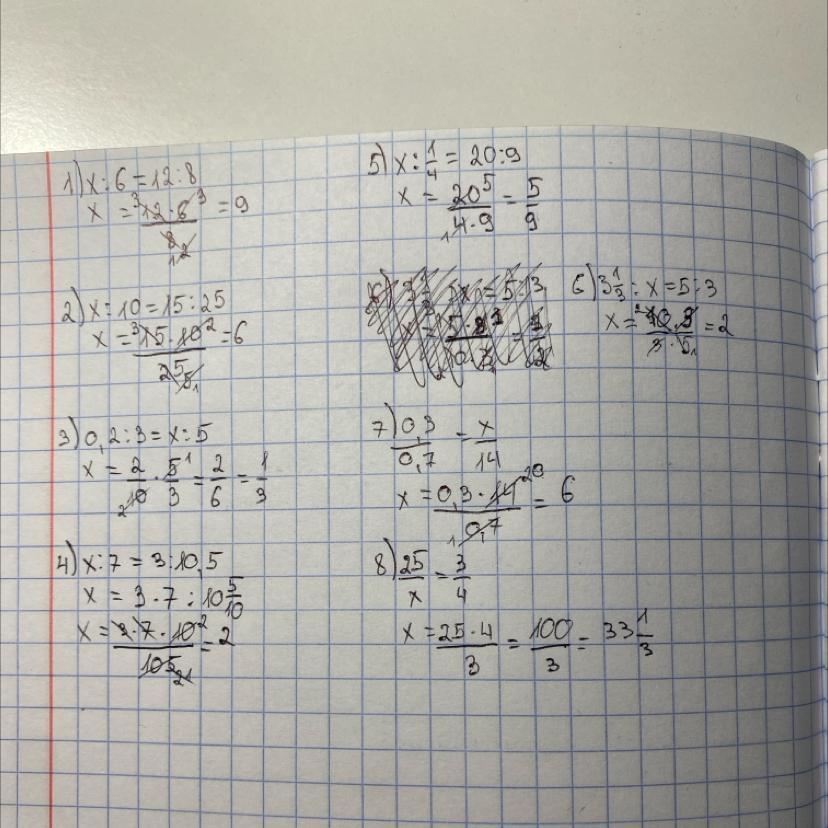 1) x : 6 = 12 : 8
x = ³12 · 6³ / 8 1 2 = 9
2) x : 10 = 15 : 25
x = ³15 · 10² / 25 5 1 = 6
3) 0,2 : 3 = x : 5
x = 2/₂10 · 5¹/3 = 2/6 = 1/3
4) x : 7 = 3 : 10,5
x = 3 · 7 : 10 5/10
x = 3 · 7 · 10² / 105 21 = 2
5) x : 1/4 = 20 : 9
x = 20⁵ / ₁4 · 9 = 5/9
6) 3 1/3 : x = 5 : 3
x = ²10 · 3 / 3 · 5₁ = 2
7) 0,3/0,7 = x/14
x = 0,3 · 14²⁰ / ₁0,7 = 6
8) 25/x = 3/4
x = 25 · 4 / 3 = 100/3 = 33 1/3